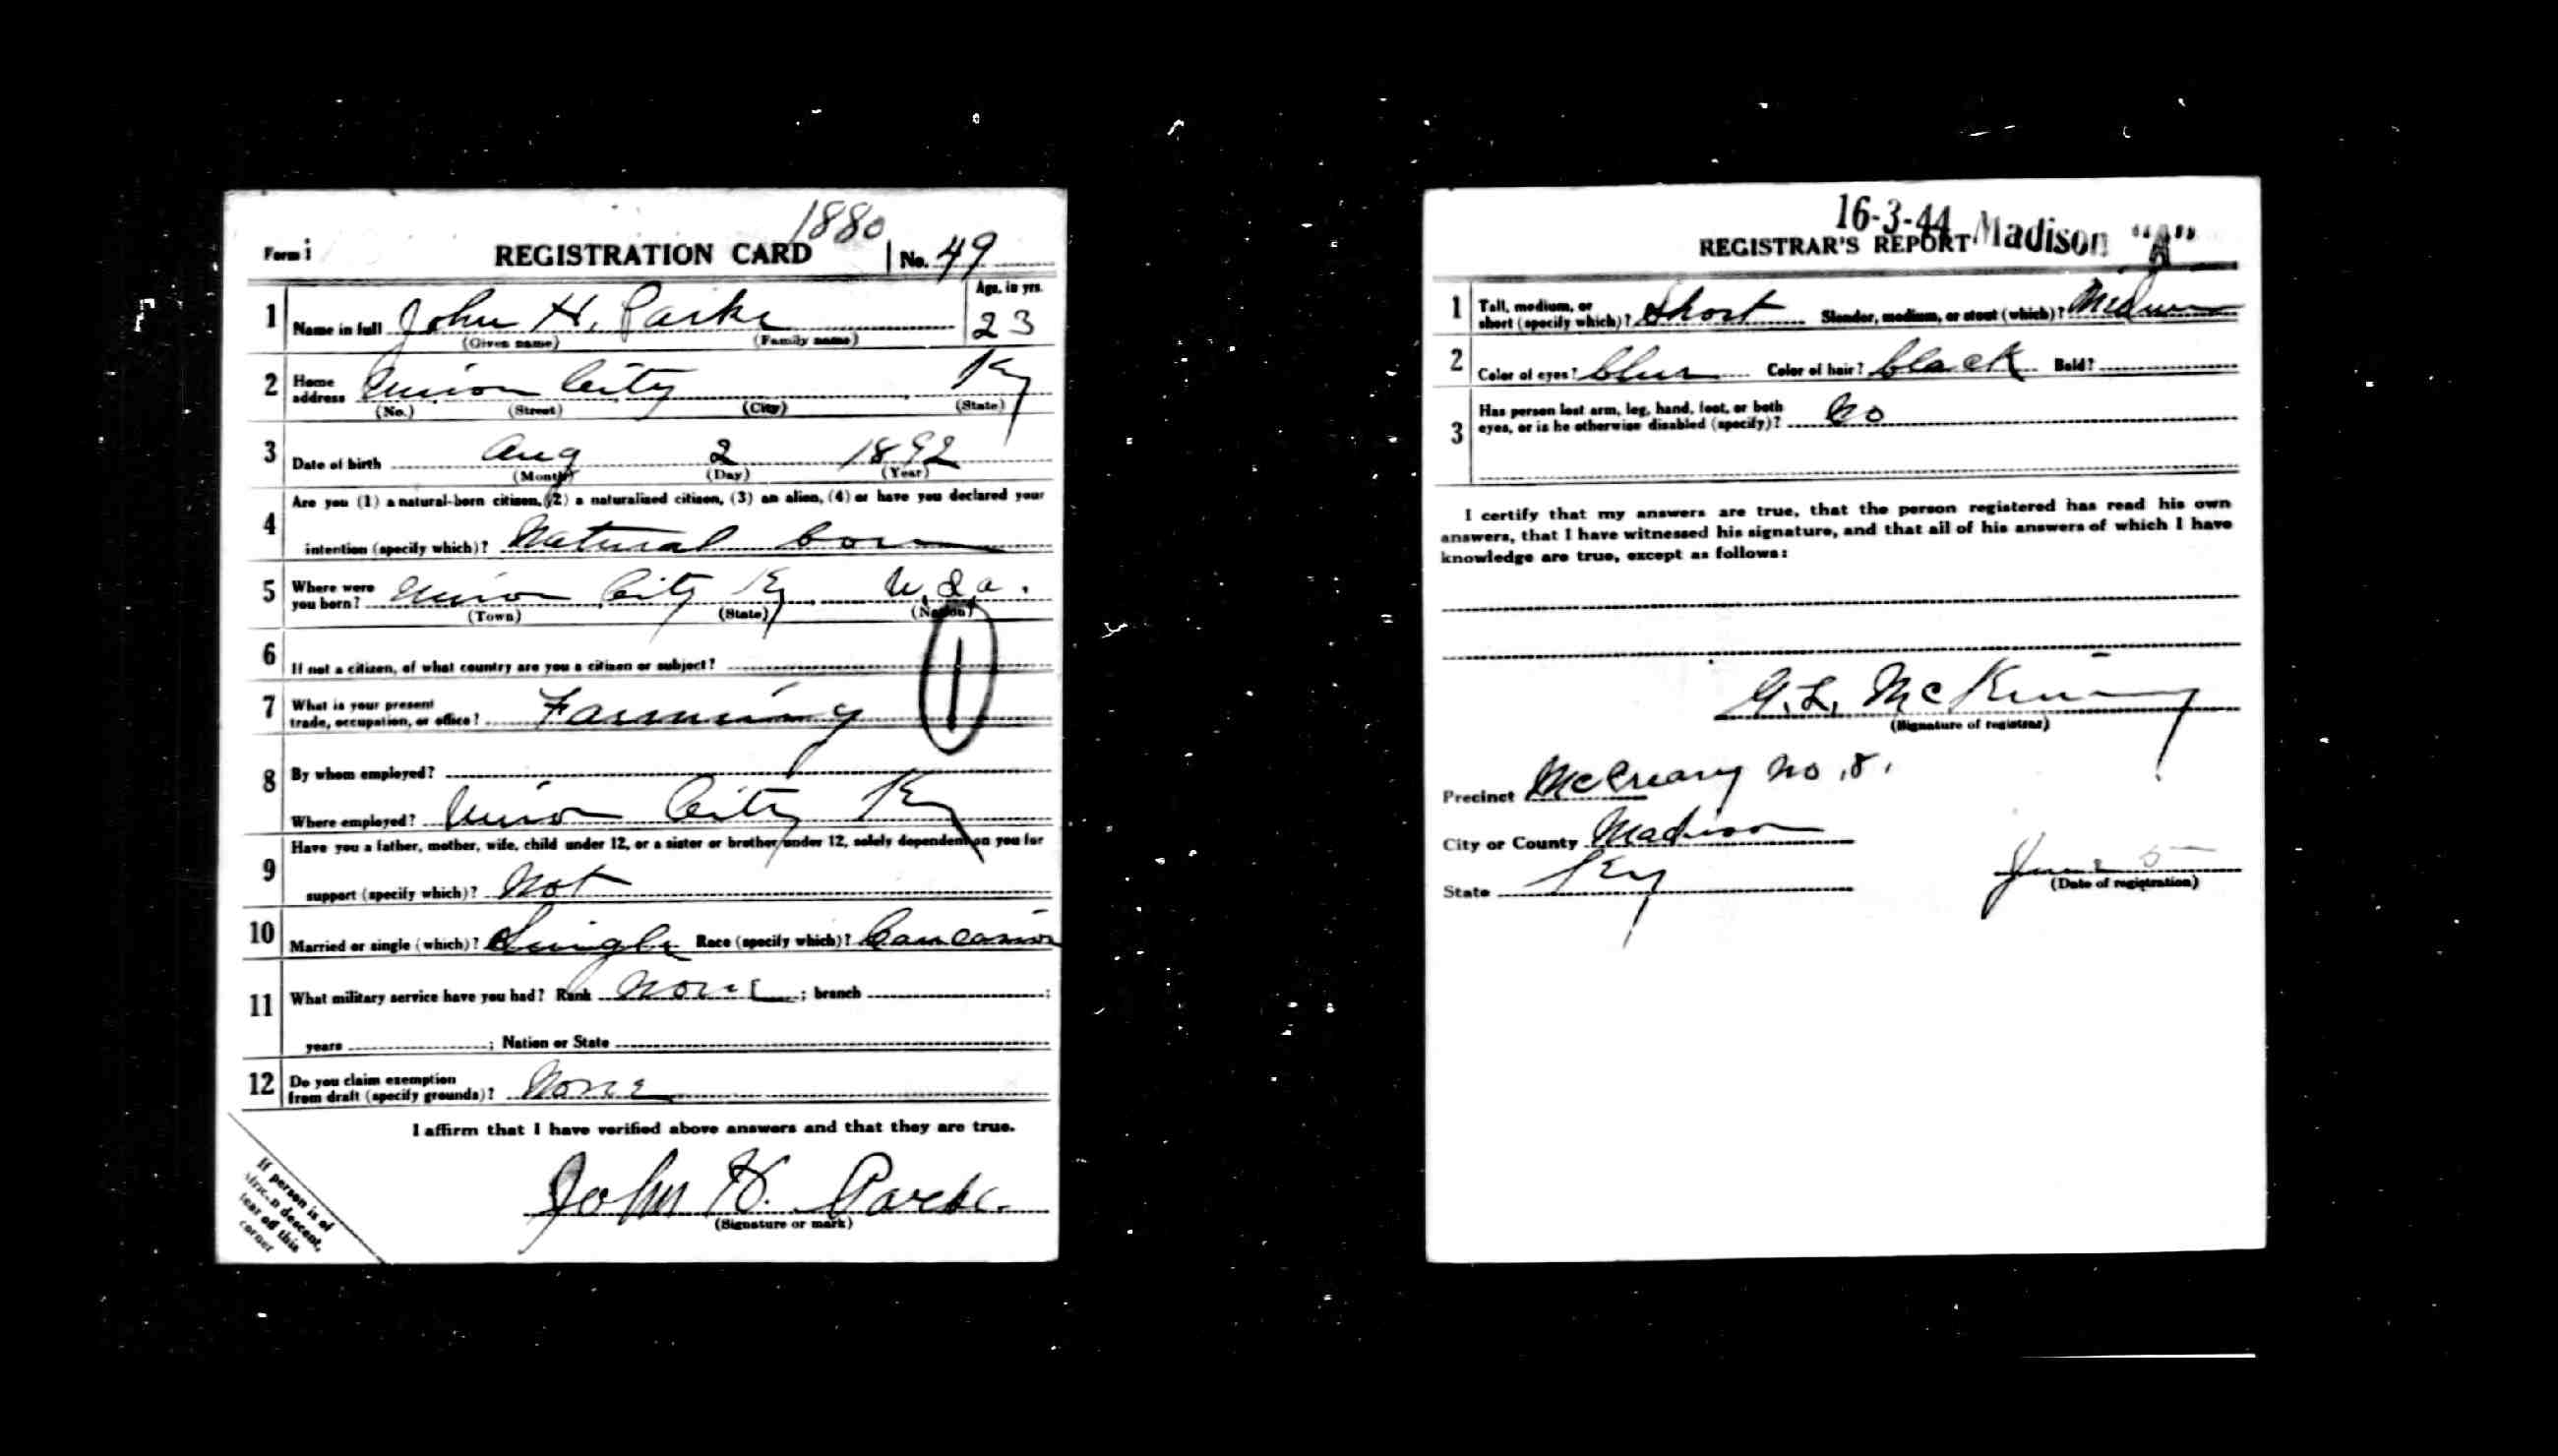 1880
Form 1 REGISTRATION CARD No. 49
1 Name in full John H. Parke Age, in yrs. 23
(Given name) (Family name)
2 Home address Union City Ky
(No.) (Street) (City) (State)
3 Date of birth Aug 2 1892
(Month) (Day) (Year)
4 Are you (1) a natural-born citizen, (2) a naturalized citizen, (3) an alien, (4) or have you declared your
intention (specify which)? Natural born
5 Where were you born? Union City Ky U.S.a.
(Town) (State) (Nation)
6 If not a citizen, of what country are you a citizen or subject?
1
7 What is your present trade, occupation, or office? Farming
8 By whom employed?
Where employed? Union City Ky
9 Have you a father, mother, wife, child under 12, or a sister or brother under 12, solely dependent on you for
support (specify which)? Not
10 Married or single (which)? Single Race (specify which)? Caucasion
11 What military service have you had? Rank None ; branch ;
years ; Nation or State
12 Do you claim exemption from draft (specify grounds)? None
I affirm that I have verified above answers and that they are true.
John H. Parke.
(Signature or mark)
If person is of
African descent,
tear off this
corner
16-3-44 Madison "A"
REGISTRAR'S REPORT
1 Tall, medium, or short (specify which)? Short Slender, medium, or stout (which)? Medium
2 Color of eyes? blue Color of hair? black Bald?
3 Has person lost arm, leg, hand, foot, or both
eyes, or is he otherwise disabled (specify)? No
I certify that my answers are true, that the person registered has read his own
answers, that I have witnessed his signature, and that all of his answers of which I have
knowledge are true, except as follows:
G.L. McKinney
(Signature of registrar)
Precinct McCreary no. 8.
City or County Madison
State Ky June 5
(Date of registration)